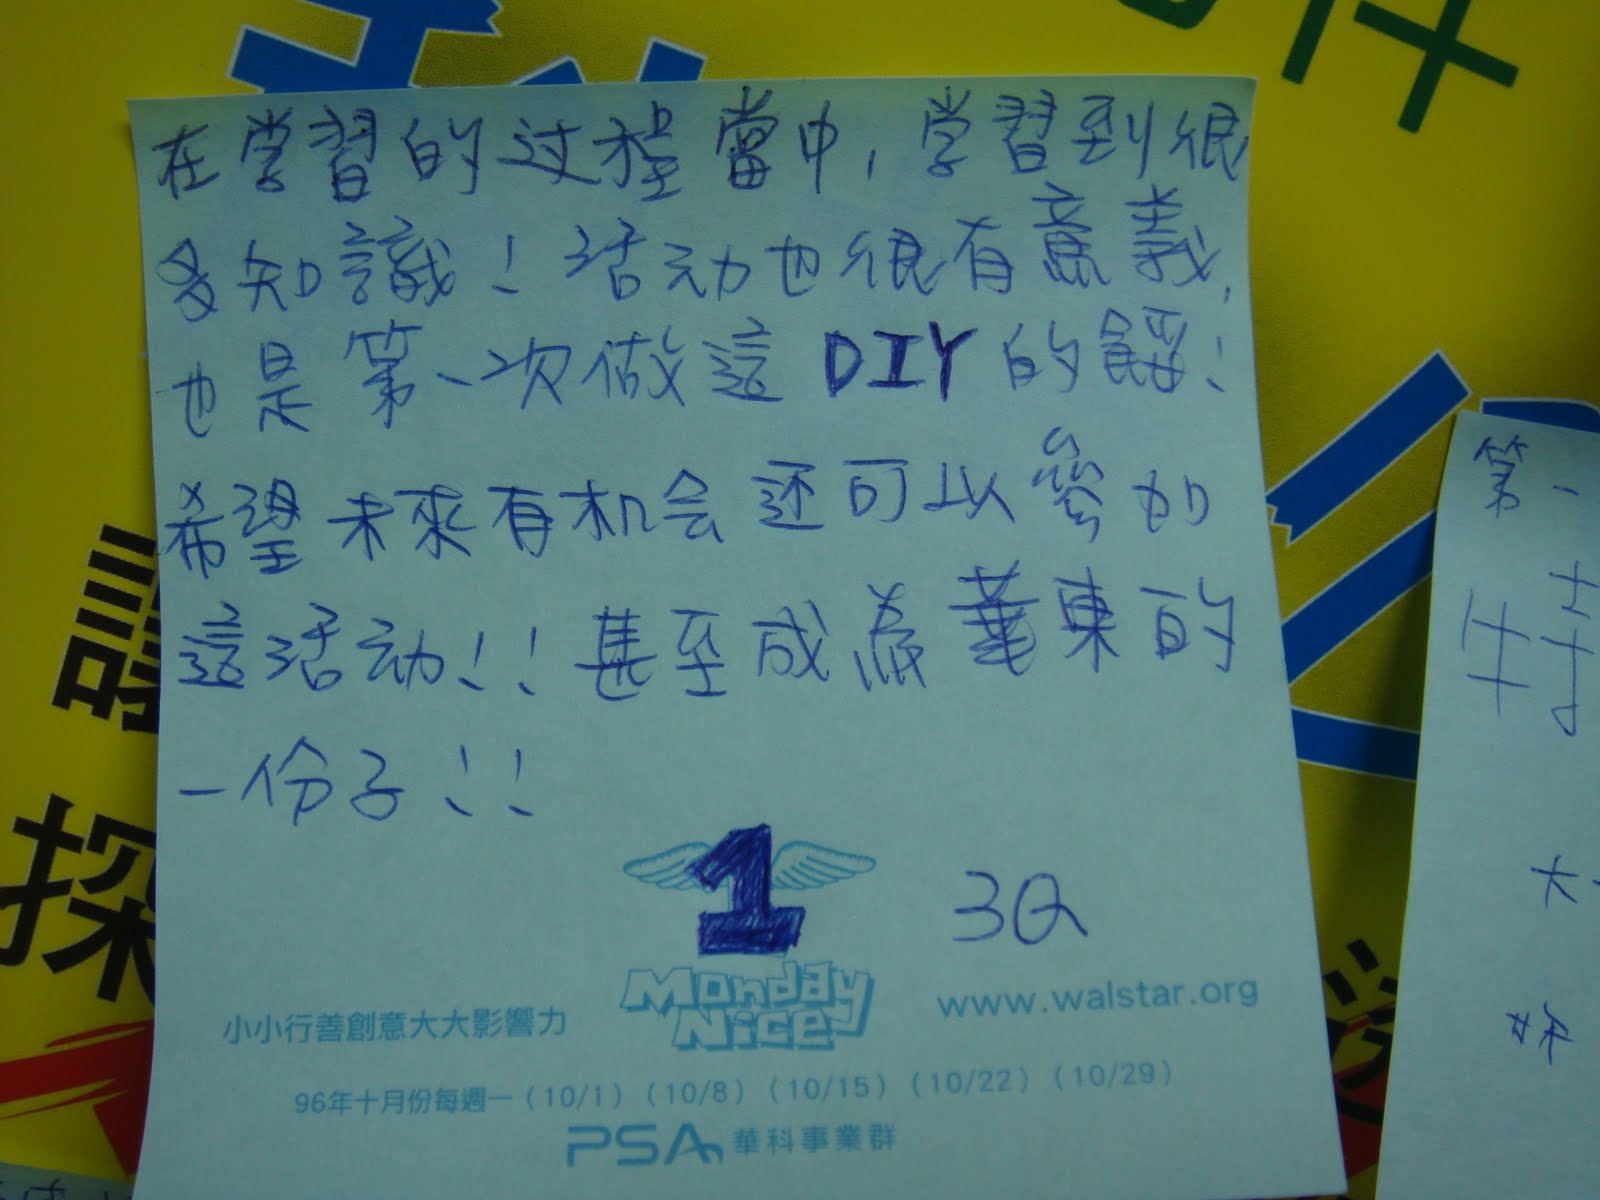 在学習的过程當中，学習到很
多知識！活动也很有意義，
也是第一次做這DIY的餒！
希望未來有机会还可以參加
這活动！！甚至成為華東的
一份子！！
1
3Q
Monday
Nice
www.walstar.org
小小行善創意大大影響力
96年十月份每週一（10/1）（10/8）（10/15）（10/22）（10/29）
PSA 華科事業群
第一
大
探